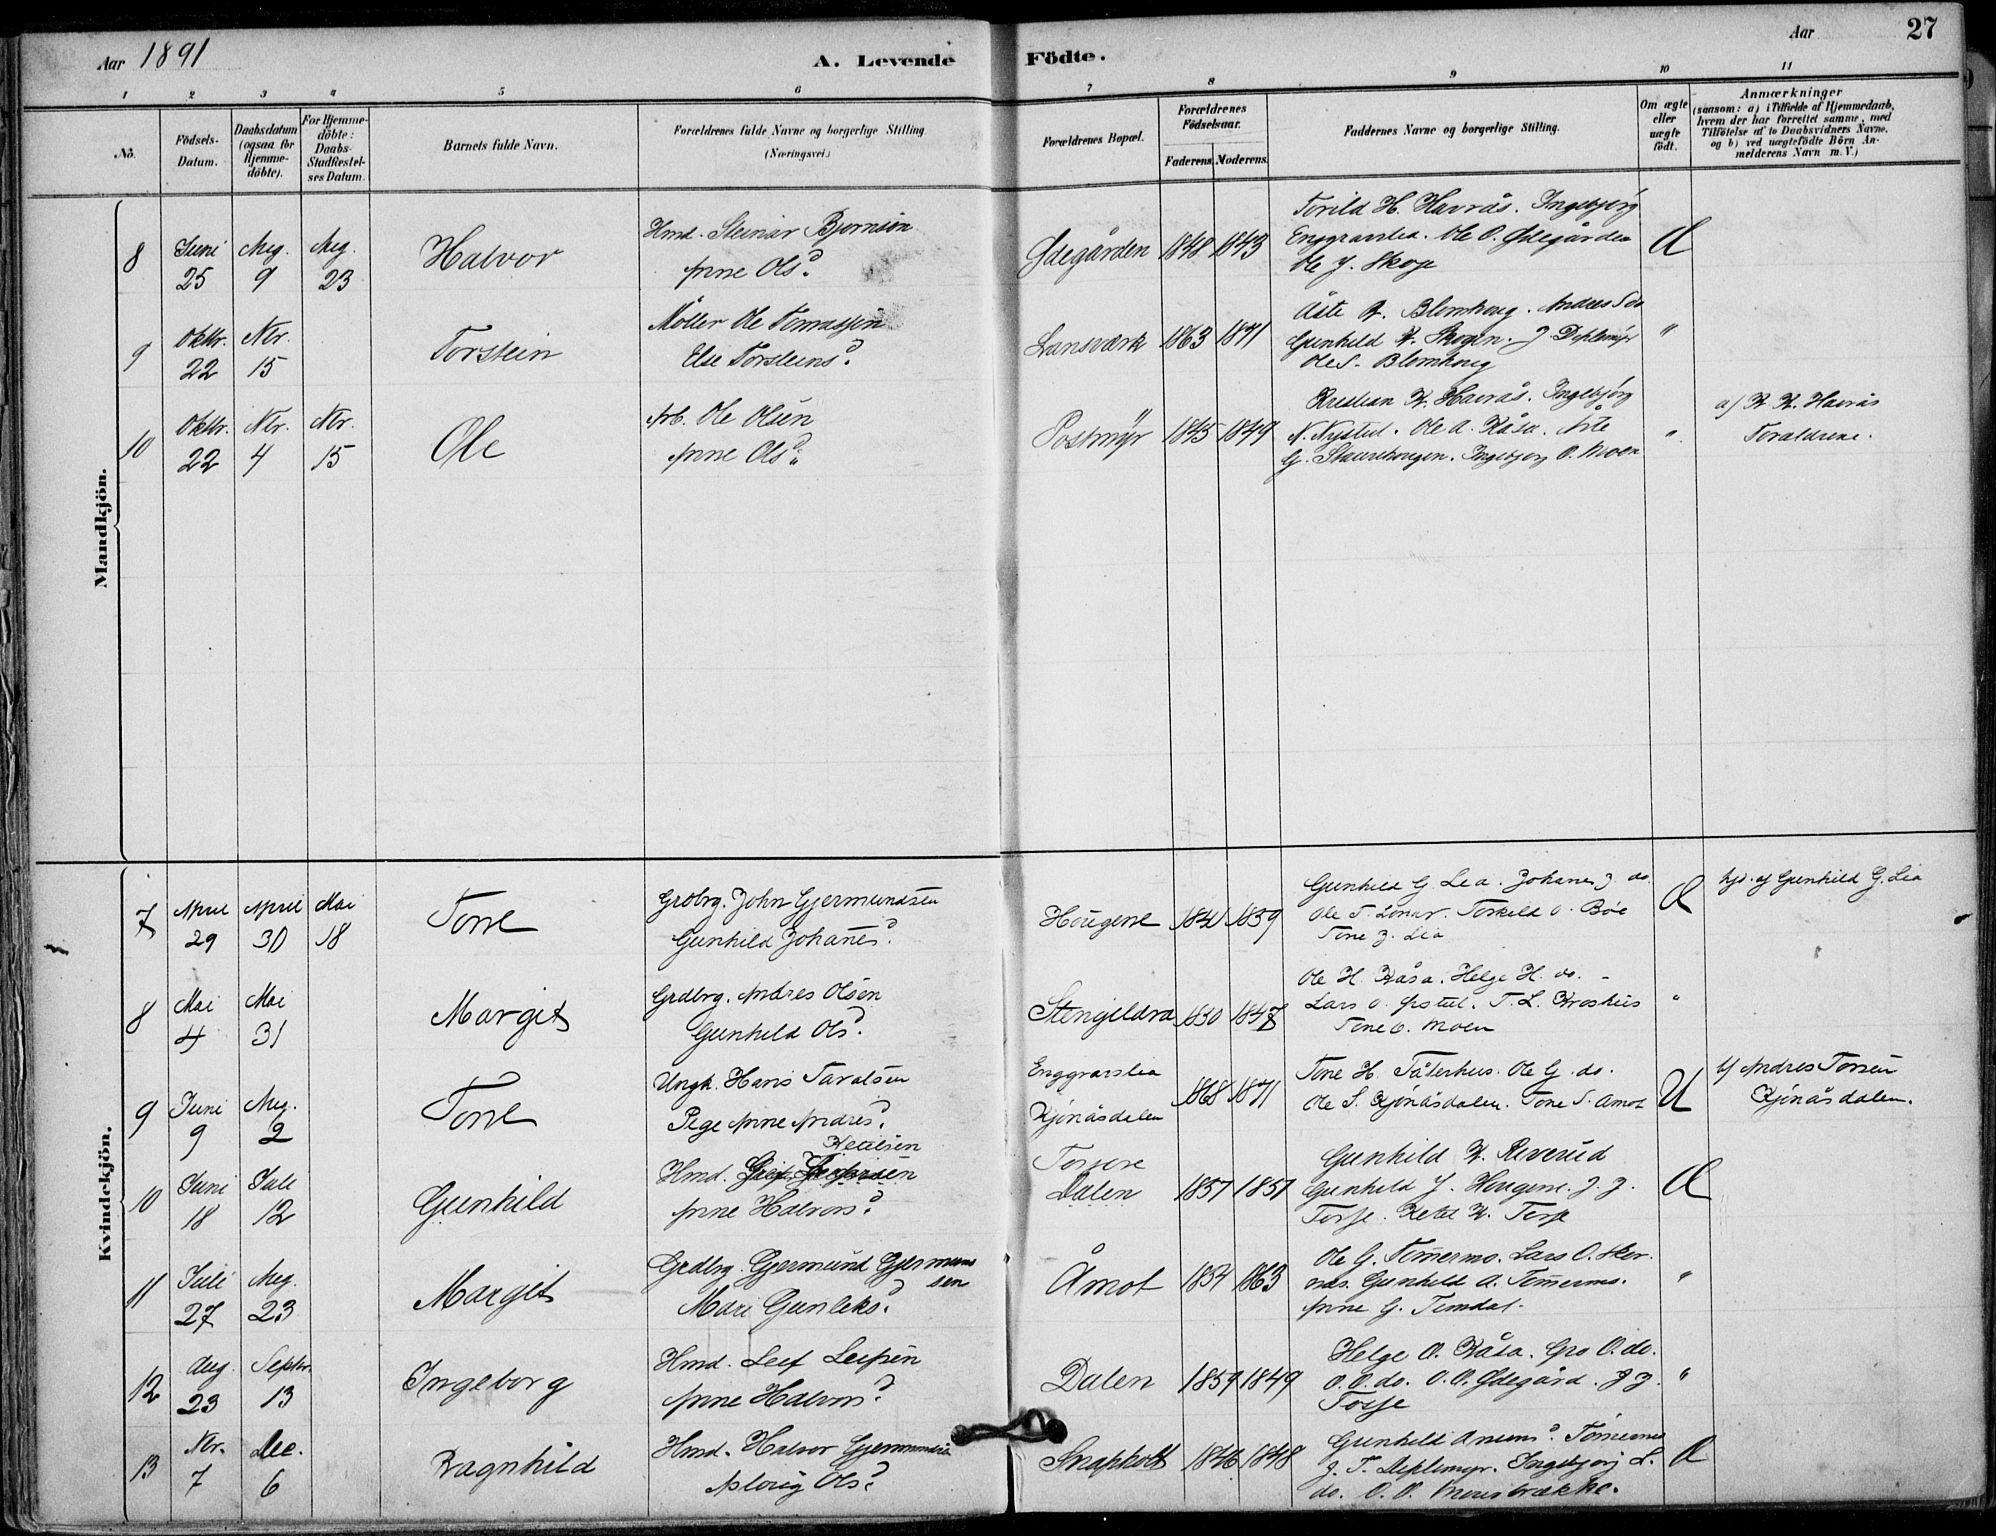 Aar 1891
A. Levende Födte.
Aar
27
1 2 3 4 5 6 7 8 9 10 11
No.
Födsels-Datum.
Daabsdatum (ogsaa for Hjemme-döbte).
For Hjemme-döbte: Daabs-Stadfestel-ses Datum.
Barnets fulde Navn.
Forældrenes fulde Navne og borgerlige Stilling (Næringsvei.)
Forældrenes Bopæl.
Forældrenes Födselsaar.
Faderens. Moderens.
Faddernes Navne og borgerlige Stilling.
Om ægte eller uægte födt.
Anmærkninger
(saasom: a) i Tilfælde af Hjemmedaab,
hvem der har forrettet samme, med
Tilföielse af to Daabsvidners Navne.
og b) ved uægtefödte Börn An-
melderens Navn m. V.)
Mandkjön.
8
Juni 25
Aug. 9
Aug. 23
Halvor
Hmd. Steinar Bjornsön
Anne Olsd.
Ødegården
1848 1843
Torild H. Havrås. Ingebjörg
Enggravslia. Ole O. Ødegården
Ole J. Skoje
Æ
9
Oktbr. 22
Nbr. 15
Torstein
Möller Ole
Else Torsteinsd.
Lansværk
1863 1871
Åste K. Blomhoug. Andres S do
Gunhild K. Skogen. J
Ole S. Blomhoug
"
10
Oktbr. 22
Nbr. 4
Nbr. 15
Ole
Arb. Ole Olsen
Anne Olsd.
Postmyr
1845 1849
Kristian K. Havrås. Ingebjørg
N. Nystul. Ole A. Kåsa. Åste
G. Ingebjorg O. Moen
"
a) K. K. Havrås
Foraldrene.
Kvindekjön.
7
April 29
April 30
Mai 18
Tone
Grdbrg. John Gjermundsen
Gunhild Johanesd.
Hougene
1841 1859
Gunhild G Lia. Johanes J. do.
Ole T. Lonar. Torkild O. Böe
Tone J. Lia
Æ
hjd. af Gunhild G. Lia
8
Mai 4
Mai 31
Margit
Grdbrg. Andres Olsen
Gunhild Olsd.
Stengildra
1850 1847
Ole H. Kåsa. Helge H. do.
Lars O. T. L. Kroshus
Tone O. Moen
"
9
Juni 9
Aug. 2
Tone
Ungk. Hans Taralsen
Pige Anne Andresd.
Enggravslia
Kjönåsdalen
1868 1871
Tone H. Täterhus. Ole G. do.
Ole S. Kjönåsdalen. Tone S. Amot
U
b) Andres Torsen
Kjönåsdalen.
10
Juni 18
Juli 12
Gunhild
Ketilsen
Hmd.
Anne Halvorsd.
Dalen
1857 1851
Gunhild K. Reverud
Gunhild J. Hougene. J. J.
Torsje. Ketil K. Torsje
Æ
11
Juli 27
Aug. 23
Margit
Grdbrg. Gjermund Gjermund
sen
Mari Gunleksd.
Åmot
1854 1863
Ole G. Tomermo. Lars O. Skor
nes. Gunhild A. Tomermo.
Anne G. Timdal.
"
12
Aug. 23
Septbr. 13
Ingeborg
Hmd. Leif Leifsen
Anne Halvorsd.
Dalen
1859 1849
Helge O. Kåsa. Gro O. do.
O. O. do. O. O. Ødegård. J J.
Torsje
"
13
Nbr. 7
Dec. 6
Ragnhild
Hmd. Halvor Gjermundsen
Aslaug Olsd.
Snapholt
1846 1848
Gunhild Tomermo
J. T. Deplemyr. Ingebjorj L.
do. O. O.
Æ